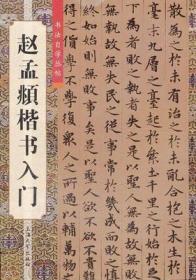 书法自学丛帖
赵孟頫楷书入门
為之於未有治之於未亂合抱之木生於
毫末九層之臺起於累土千里之行始於足
下為者敗之執者失之是以聖人無為故
無敗無執故無失民之從事常於幾成而敗之慎
終如始則無敗事矣是以聖人欲不欲不貴難
得之貨學不學復眾人之所過以輔萬物